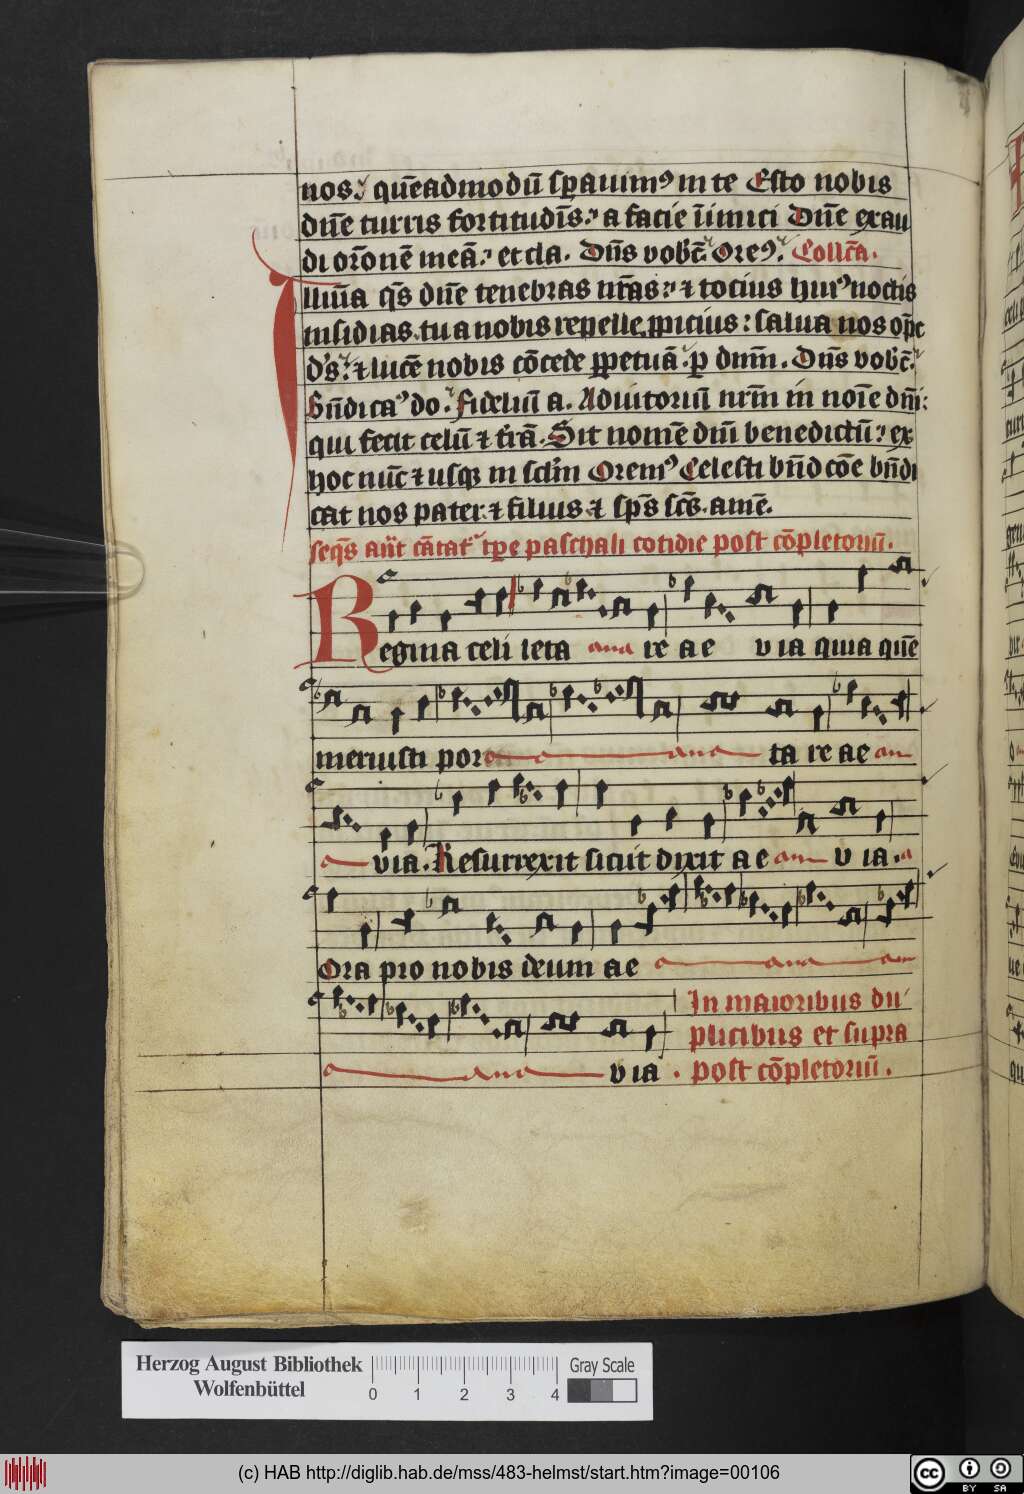 nos. quēadmodū sꝑauimꝰ in te Esto nobis
dn̄e turris fortitudīs. a facie īimici Dn̄e exau
di or̄onē meā. et cla. Dn̄s vobc̄. Oreꝰ. Collc̄a.
Illuīa qs̄ dn̄e tenebras nr̄as. ⁊ tocius huiꝰ noctis
insidias tu a nobis repelle ꝓpicius: salua nos op̄c
ds̄. ⁊ lucē nobis cōcede ꝑpetuā. ꝑ dnm̄. Dn̄s vobc̄.
Bn̄dicaꝰ do. fideliū a. Adiutoriū nrm̄ in noīe dm̄i:
qui fecit celū ⁊ tr̄ā. Sit nomē dn̄i benedictū: ex
hoc nūc ⁊ usqꝫ in sclm̄ Oremꝰ Celesti bn̄dcōe bn̄di
cat nos pater ⁊ filius ⁊ sps̄ scs̄. amē.
seqs̄ an̄t cātat᷑ tꝑe paschali cotidie post cōpletoriū.
Regina celi leta are ae via quia quē
meruisti por ta re ae
via. Resurrexit sicut dixit ae v ia.
Ora pro nobis deum ae
via. In maioribus du
plicibus et supra
post cōpletoriū.
Herzog August Bibliothek
Wolfenbüttel
0 1 2 3 4
Gray Scale
(c) HAB http://diglib.hab.de/mss/483-helmst/start.htm?image=00106
cc BY SA